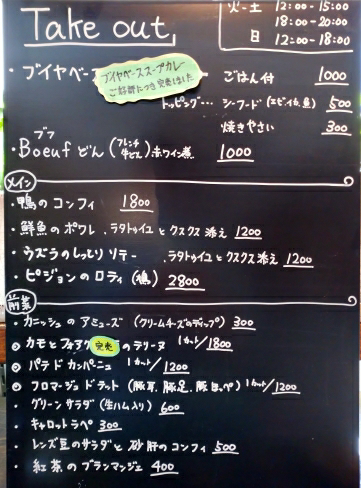 Take out
火-土 12:00-15:00
18:00-20:00
日 12:00-18:00
・ブイヤベース
ブイヤベーススープカレー
ご好評につき完売しました
ごはん付 1000
トッピング… シーフード(エビイカ魚) 500
焼きやさい 300
ブフ
・Boeufどん(フレンチ牛どん)赤ワイン煮 1000
メイン
・鴨のコンフィ 1800
・鮮魚のポワレ.ラタトゥイユとクスクス添え 1200
・ウズラのしっとりソテー.ラタトゥイユとクスクス添え 1200
・ピジョンのロティ(鳩) 2800
前菜
・カニッシュのアミューズ(クリームチーズのディップ) 300
・カモとフォアグ 完売 のテリーヌ 1カット/1800
・パテドカンパーニュ 1カット/1200
・フロマージュドテット(豚耳、豚足、豚ほっぺ) 1カット/1200
・グリーンサラダ(生ハム入り) 600
・キャロットラペ 300
・レンズ豆のサラダと砂肝のコンフィ 500
・紅茶のブランマンジェ 400